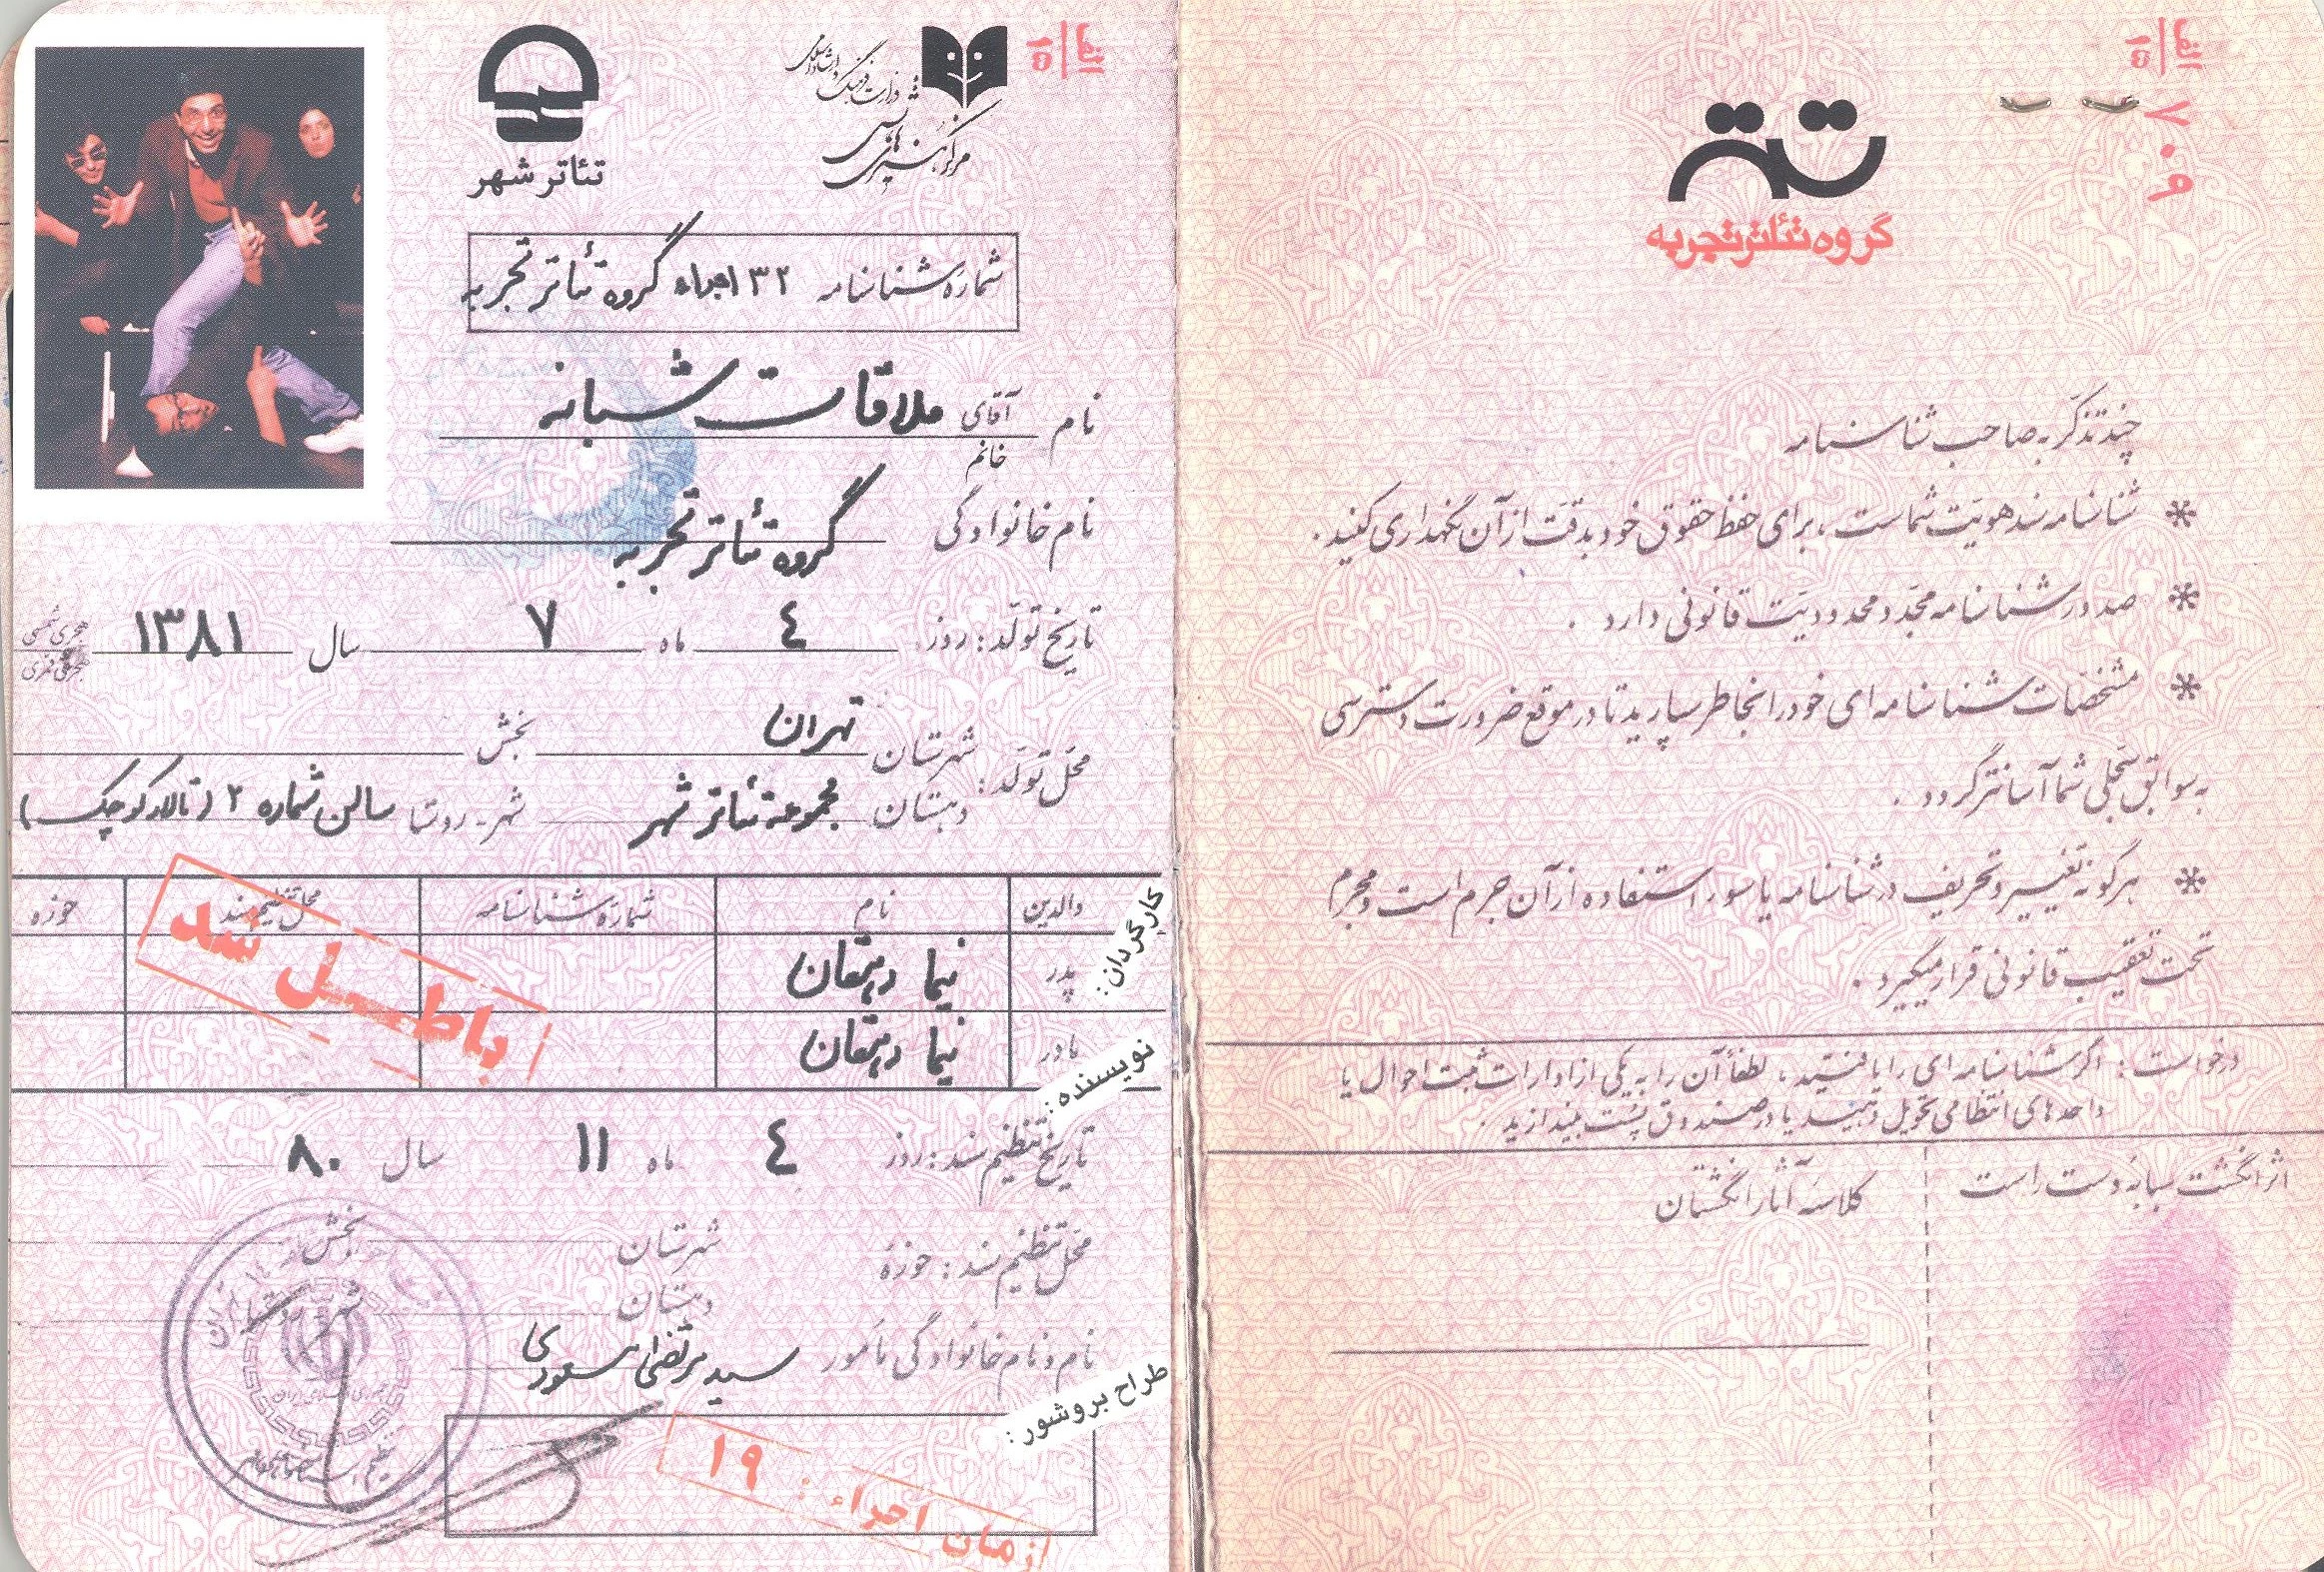 الف
۱۵
۷۰۹
تئاتر
گروه تئاتر تجربه
چند تذکّر به صاحب شناسنامه
* شناسنامه سند هویّت شماست ، برای حفظ حقوق خود بدقّت از آن نگهداری کنید .
* صدور شناسنامه مجّدد محدودیّت قانونی دارد .
* مشخصّات شناسنامه ای خود را بخاطر بسپارید تا در موقع ضرورت دسترسی
به سوابق سجلّی شما آسانتر گردد .
* هرگونه تغییر و تحریف در شناسنامه یا سوء استفاده از آن جرم است و مجرم
تحت تعقیب قانونی قرار میگیرد .
درخواست : اگر شناسنامه ای را یافتید ، لطفاً آن را به یکی از ادارات ثبت احوال یا
واحدهای انتظامی تحویل دهید یا در صندوق پست بیندازید .
اثر انگشت سبابه دست راست
کلاسه آثار انگشتان
الف
۱۵
وزارت فرهنگ و ارشاد اسلامی
مرکز هنرهای نمایشی
تئاتر شهر
شماره شناسنامه ۳۲ اجراء گروه تئاتر تجربه
نام آقای ملاقات شبانه
خانم
نام خانوادگی گروه تئاتر تجربه
تاریخ تولّد : روز ٤ ماه ۷ سال ۱۳۸۱ هجری شمسی
هجری قمری
محّل تولّد : شهرستان تهران بخش
دهستان مجموعه تئاتر شهر شهر - روستا سالن شماره ۲ (تالار کوچک)
والدین نام شماره شناسنامه محل تنظیم سند حوزه
کارگردان :
پدر نیما دهقان
مادر نیما دهقان
نویسنده :
باطل شد
تاریخ تنظیم سند : روز ٤ ماه ۱۱ سال ۸۰
محّل تنظیم سند : حوزه شهرستان بخش
دهستان شهر - روستا
نام و نام خانوادگی مأمور سید مرتضی مسعودی
طراح بروشور :
زمان اجراء : ۱۹